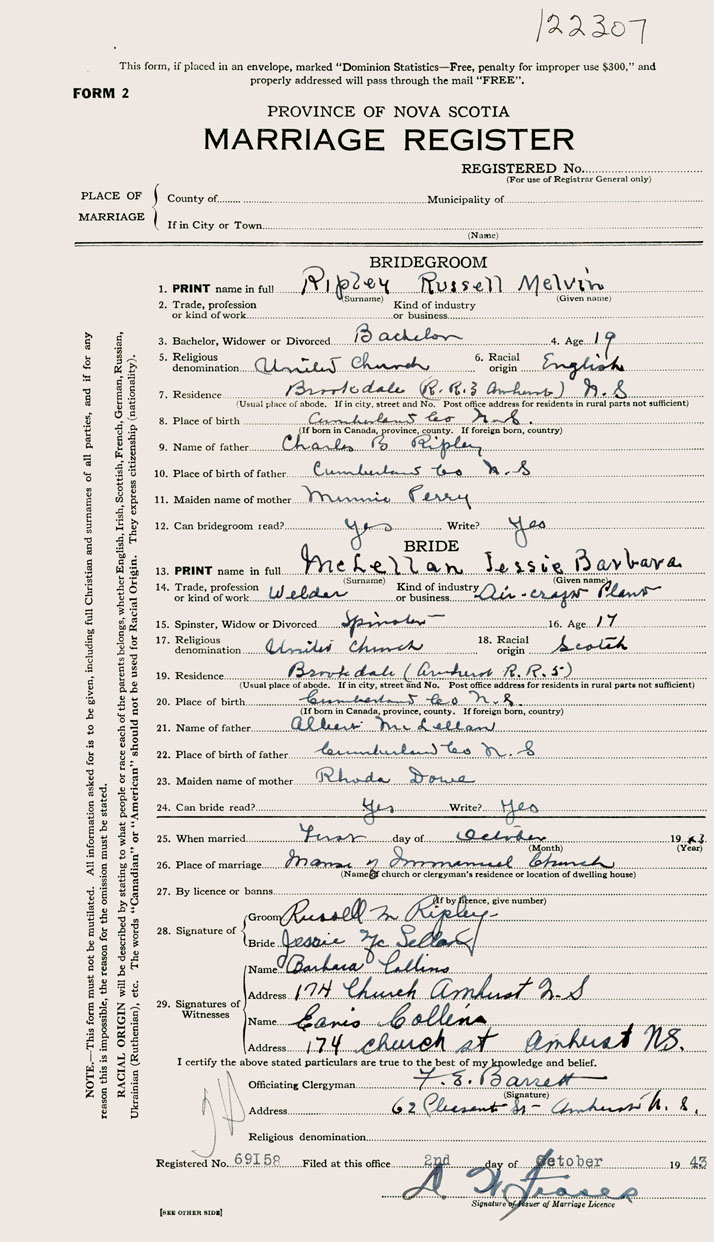 122307
This form, if placed in an envelope, marked "Dominion Statistics—Free, penalty for improper use $300," and
properly addressed will pass through the mail "FREE".
FORM 2
PROVINCE OF NOVA SCOTIA
MARRIAGE REGISTER
REGISTERED No.
(For use of Registrar General only)
PLACE OF MARRIAGE
County of Municipality of
If in City or Town
(Name)
BRIDEGROOM
1. PRINT name in full Ripley Russell Melvin
(Surname) (Given name)
2. Trade, profession or kind of work Kind of industry or business
3. Bachelor, Widower or Divorced Bachelor 4. Age 19
5. Religious denomination United Church 6. Racial origin English
7. Residence Brookdale (R.R.3 Amherst) N.S
(Usual place of abode. If in city, street and No. Post office address for residents in rural parts not sufficient)
8. Place of birth Cumberland Co N.S.
(If born in Canada, province, county. If foreign born, country)
9. Name of father Charles B Ripley
10. Place of birth of father Cumberland Co N.S
11. Maiden name of mother Minnie Perry
12. Can bridegroom read? Yes Write? Yes
BRIDE
13. PRINT name in full McLellan Jessie Barbara
(Surname) (Given name)
14. Trade, profession or kind of work Welder Kind of industry or business Air-craft Plant
15. Spinster, Widow or Divorced Spinster 16. Age 17
17. Religious denomination United Church 18. Racial origin Scotch
19. Residence Brookdale (Amherst R.R.5)
(Usual place of abode. If in city, street and No. Post office address for residents in rural parts not sufficient)
20. Place of birth Cumberland Co N.S.
(If born in Canada, province, county. If foreign born, country)
21. Name of father Albert McLellan
22. Place of birth of father Cumberland Co N.S
23. Maiden name of mother Rhoda Dowe
24. Can bride read? Yes Write? Yes
25. When married First day of October 1943
(Month) (Year)
26. Place of marriage Manse of Immanuel Church
(Name of church or clergyman's residence or location of dwelling house)
27. By licence or banns
(If by licence, give number)
28. Signature of
Groom Russell M Ripley
Bride Jessie McLellan
29. Signatures of Witnesses
Name Barbara Collins
Address 174 Church Amherst N.S
Name Collins
Address 174 church st Amherst NS.
I certify the above stated particulars are true to the best of my knowledge and belief.
Officiating Clergyman F. E. Barrett
(Signature)
Address 62 Pleasent St- Amherst N.S.
Religious denomination
Registered No. 69158 Filed at this office 2nd day of October 1943
D W Fraser
Signature of Issuer of Marriage Licence
[SEE OTHER SIDE]
NOTE.—This form must not be mutilated. All information asked for is to be given, including full Christian and surnames of all parties, and if for any
reason this is impossible, the reason for the omission must be stated.
RACIAL ORIGIN will be described by stating to what people or race each of the parents belongs, whether English, Irish, Scottish, French, German, Russian,
Ukrainian (Ruthenian), etc. The words "Canadian" or "American" should not be used for Racial Origin. They express citizenship (nationality).